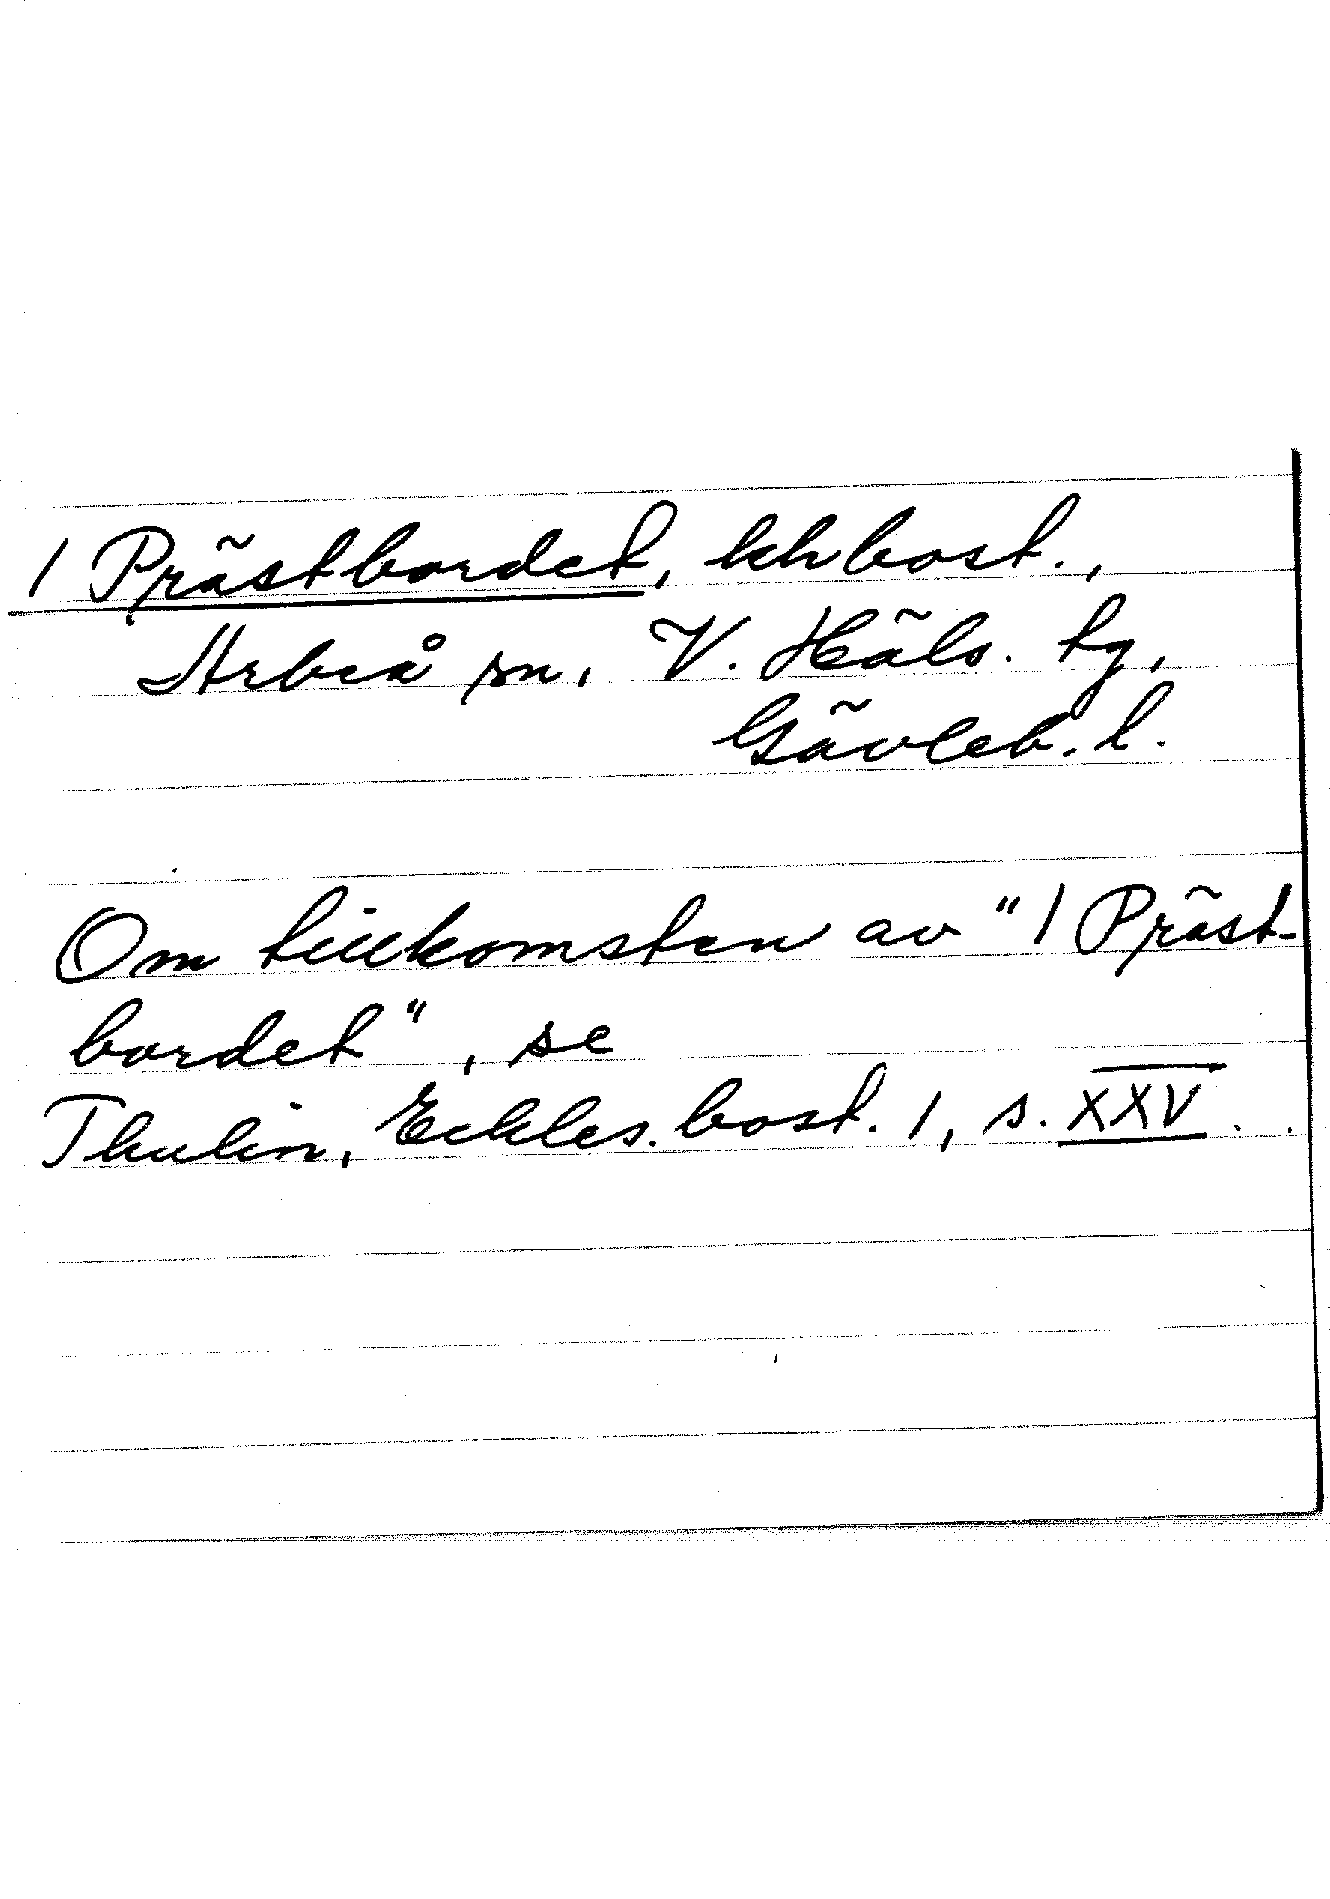 1 Prästbordet, khbost.,
Arbrå sn, V. Häls. tg,
Gävleb. l.
Om tillkomsten av "1 Präst-
bordet", se
Thulin, Eckles. bost. 1, s. XXV.